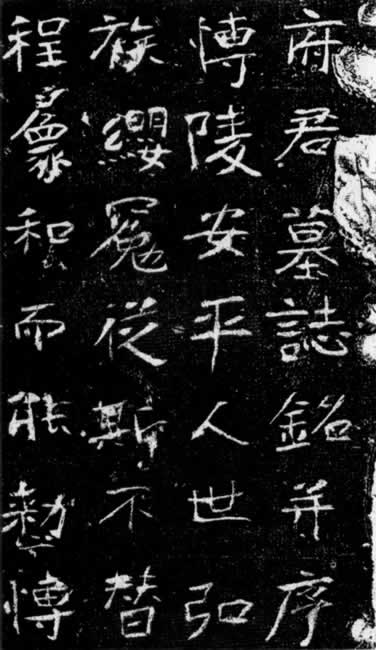 府君墓誌銘并序
愽陵安平人世弘
族纓冕從斯不替
程象和而能懃愽